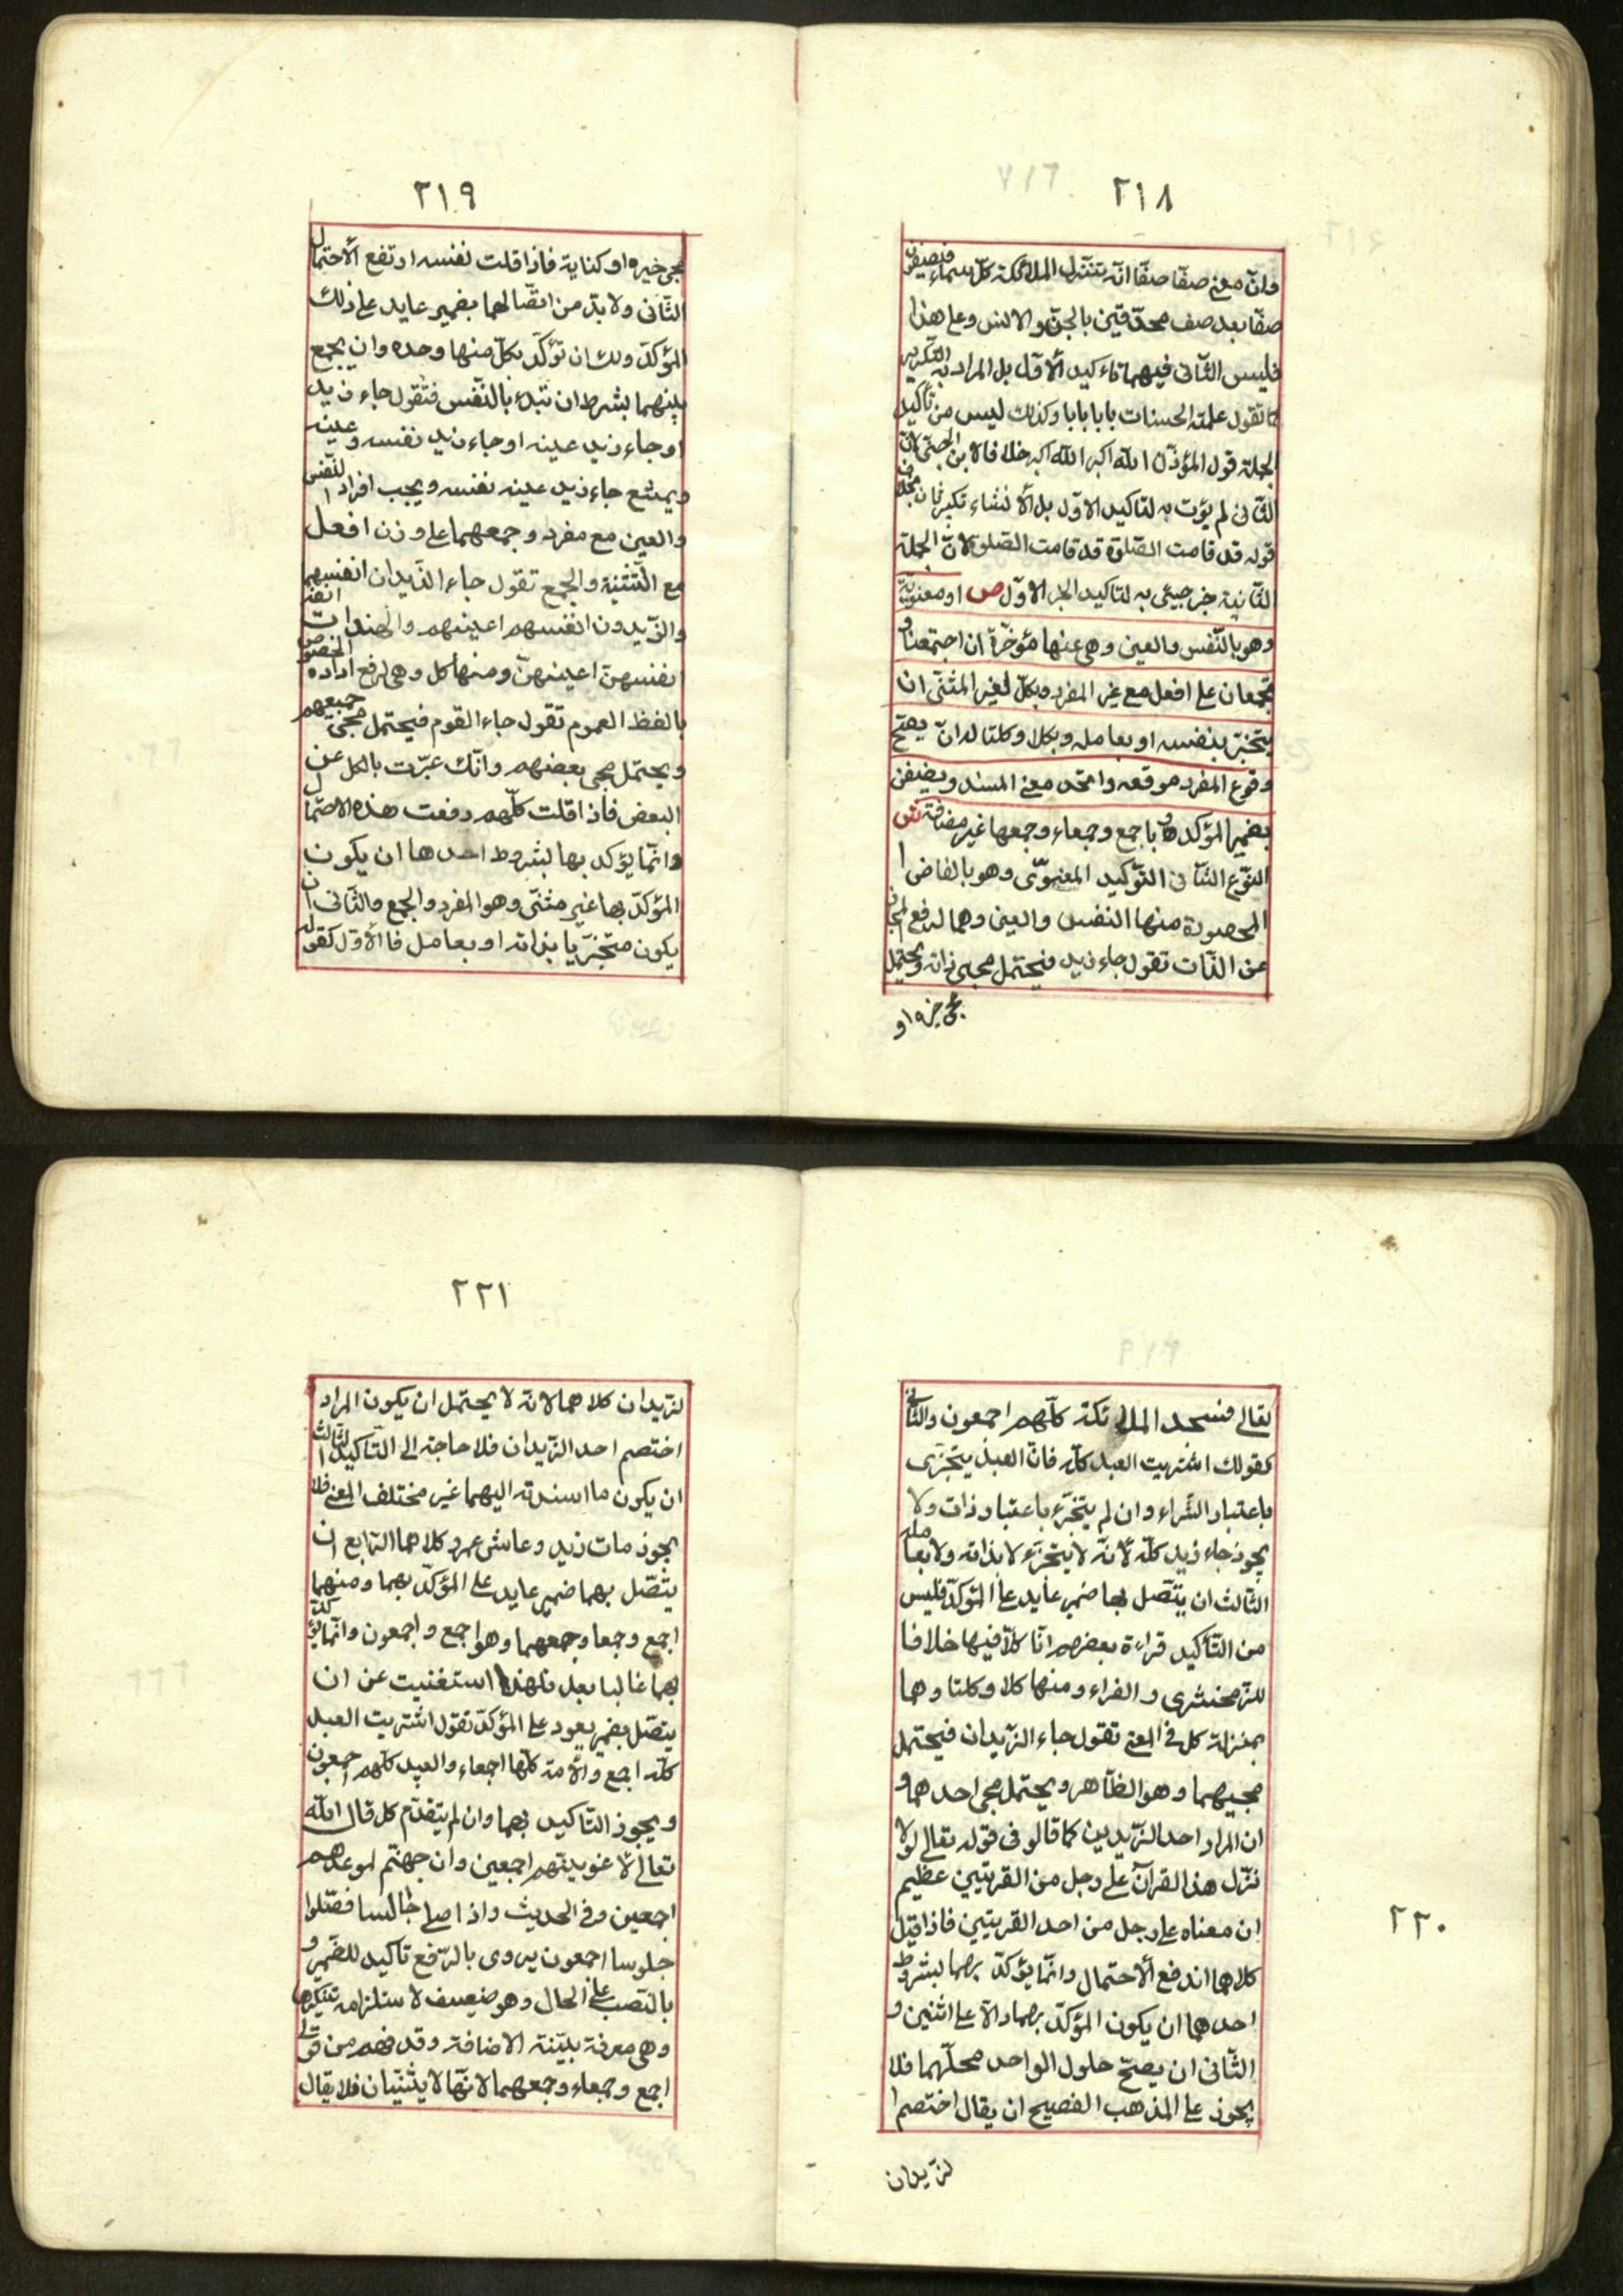 ٢١٨
وانّ معنى صفّا صفّا انّه تتنزل الملائكة كلّ سماء فيصيفون
صفّا بعد صف محدّقين بالجنّ والانس وعلى هذا
فليس الثّانى فيهما تاءكيد الأوّل بل المراد به التّكرير
كما تقول علمته الحسنات بابا بابا وكذلك ليس من تأكيد
الجملة قول المؤذّن الله اكبر الله اكبر خلافا لابن الجنّى لانّ
الثّانى لم يؤت به لتاكيد الاوّل بل لأنشاء تكبير ثان بخلاف
قوله قد قامت الصّلوة قد قامت الصّلوة لانّ الجملة
الثّانية خبر جيئ به لتاكيد الخبر الاوّل ص او معنويّة
وهو بالنّفس والعين وهى عنها مؤخّرة ان اجتمعتا و
تجمعان على افعل مع غير المفرد وبكلّ لغير المثنّى ان
يتجزّ بنفسه او بعامله وبكلا وكلتا له ان يصحّ
وقوع المفرد موقعه واتحد معنى المسند ويضيفن
بضمير المؤكد وباجمع وجمعاء وجمعها غير مضافة ش
النّوع الثّانى التّوكيد المعنوىّ وهو بالفاض ا
المحصورة منها النفس والعين وهما لرفع المجاز
عن الذّات تقول جاء زيد فيحتمل مجيئ ذاته ويحتمل
مجئ خبره او
٢١٩
مجئ خيره او كناية فاذا قلت نفسه ارتفع ألاحتمال
الثّانى ولا بدّ من اتّصالهما بضمير عايد على ذلك
المؤكدّ ولك ان تؤكّد بكلّ منها وحده وان يجمع
بينهما بشرط ان تبدء بالنّفس فتقول جاء زيد
او جاء زيد عينه او جاء زيد نفسه وعينه
ويمتنع جاء زيد عينه نفسه ويجب افراد النّفس
والعين مع مفرد وجمعهما على وزن افعل
مع التّثنية والجمع تقول جاء الزّيدان انفسهما
والزّيدون انفسهم اعينهم والهندات انفـ
نفسهنّ اعينهنّ ومنها كل وهى لرفع ارادة الخصوص
بالفظ العموم تقول جاء القوم فيحتمل مجئ جميعهم
ويحتمل مجى بعضهم وانّك عبّرت بالكل عن
البعض فاذا قلت كلّهم رفعت هذه الاحتمال
وانّما يؤكد بها بشروط احدها ان يكون
المؤكدّ بها غير مثنّى وهو المفرد والجمع والثّانى ان
يكون متجزّيا بذاته او بعامل فا ألاوّل كقوله
٢٢٠
تعالى فسجد الملائكة كلّهم اجمعون والثّانى
كقولك اشتريت العبد كلّه فانّ العبد يتجزّى
باعتبار الشّراء وان لم يتجزّء باعتبار ذات ولا
يجوز جاء زيد كلّه لأنّه لا يتجزّء لا بذاته ولا بعامله
الثّالث ان يتّصل بها ضمير عايد على المؤكدّ فليس
من التّأكيد قراءة بعضهم انّا كلاّ فيها خلافا
للزّمخشرى والفراء ومنها كلا وكلتا وهما
بمنزلة كل فى المعنى تقول جاء الزّيدان فيحتمل
مجيهما وهو الظّاهر ويحتمل مجى احدهما و
ان المراد احد الزّيدين كما قالو فى قوله تعالى لولا
نزّل هذا القرآن على رجل من القريتين عظيم
ان معناه على رجل من احد القريتين فاذا قيل
كلاهما اندفع ألاحتمال وانّما يؤكدّ بهما بشروط
احدهما ان يكون المؤكدّ بهما دالاّ على اثنين و
الثّانى ان يصحّ حلول الواحد محلّهما فلا
يجوز على المذهب الفصيح ان يقال اختصم ا
لزّيدان
٢٢١
لزّيدان كلاهما لانه لا يحتمل ان يكون المراد
اختصم احد الزّيدان فلا حاجة الى التّاكيد الثّالث
ان يكون ما اسندته اليهما غير مختلف المعنى فلا
يجوز مات زيد وعاش عمرو كلاهما الرّابع ان
يتّصل بهما ضمير عايد على المؤكدّ بهما ومنهما
اجمع وجمعا وجمعهما وهو اجمع واجمعون وانّما يؤكدّ
بهما غالبا بعد فلهذا استغنيت عن ان
يتّصل بضمير يعود على المؤكدّ تقول اشتريت العبد
كلّه اجمع والأمة كلّها اجمعاء والعبيد كلّهم اجمعون
ويجوز التّاكيد بهما وان لم يتقدّم كل قال الله
تعالى لأغوينّهم اجمعين وان جهنّم لموعدهم
اجمعين وفى الحديث واذا صلى جالسا فصّلوا
جلوسا اجمعون يروى بالرّفع تاكيد للضّمير و
بالنّصب على الحال وهو ضعيف لاستلزامه تنكيرها
وهى معرفة بنيّة الاضافة وقد فهم من قولى
اجمع وجمعاء وجمعهما لانّها لا يثنّيان فلا يقال